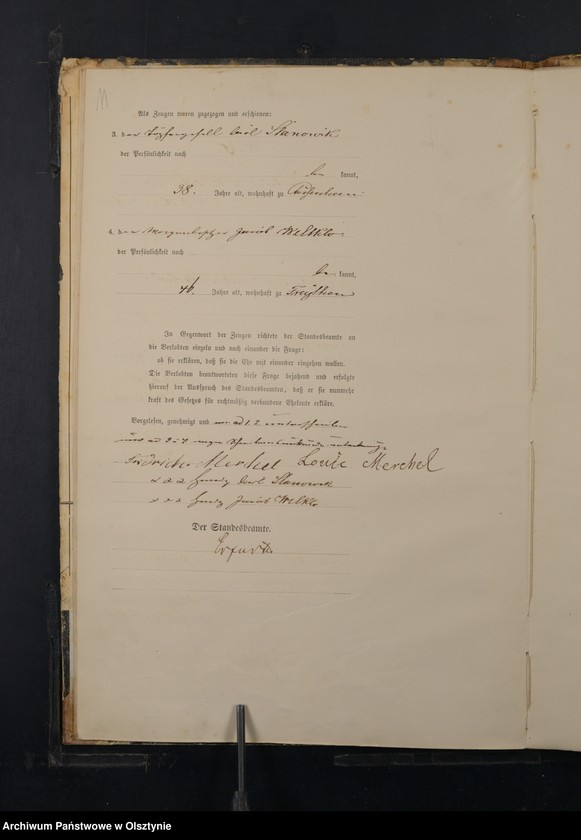 11
Als Zeugen waren zugezogen und erschienen:
3. der Carl Stanowik
der Persönlichkeit nach
be kannt,
38. Jahre alt, wohnhaft zu
4. der Jacob
der Persönlichkeit nach
be kannt,
46. Jahre alt, wohnhaft zu
In Gegenwart der Zeugen richtete der Standesbeamte an
die Verlobten einzeln und nach einander die Frage:
ob sie erklären, daß sie die Ehe mit einander eingehen wollen.
Die Verlobten beantworteten diese Frage bejahend und erfolgte
hierauf der Ausspruch des Standesbeamten, daß er sie nunmehr
kraft des Gesetzes für rechtmäßig verbundene Eheleute erkläre.
Vorgelesen, genehmigt und von ad 1. 2 unterschrieben
und ad 3 u 4 wegen
Merchel Louise Merchel
Carl Stanowik
Jacob
Der Standesbeamte.
Erfurth
Archiwum Państwowe w Olsztynie